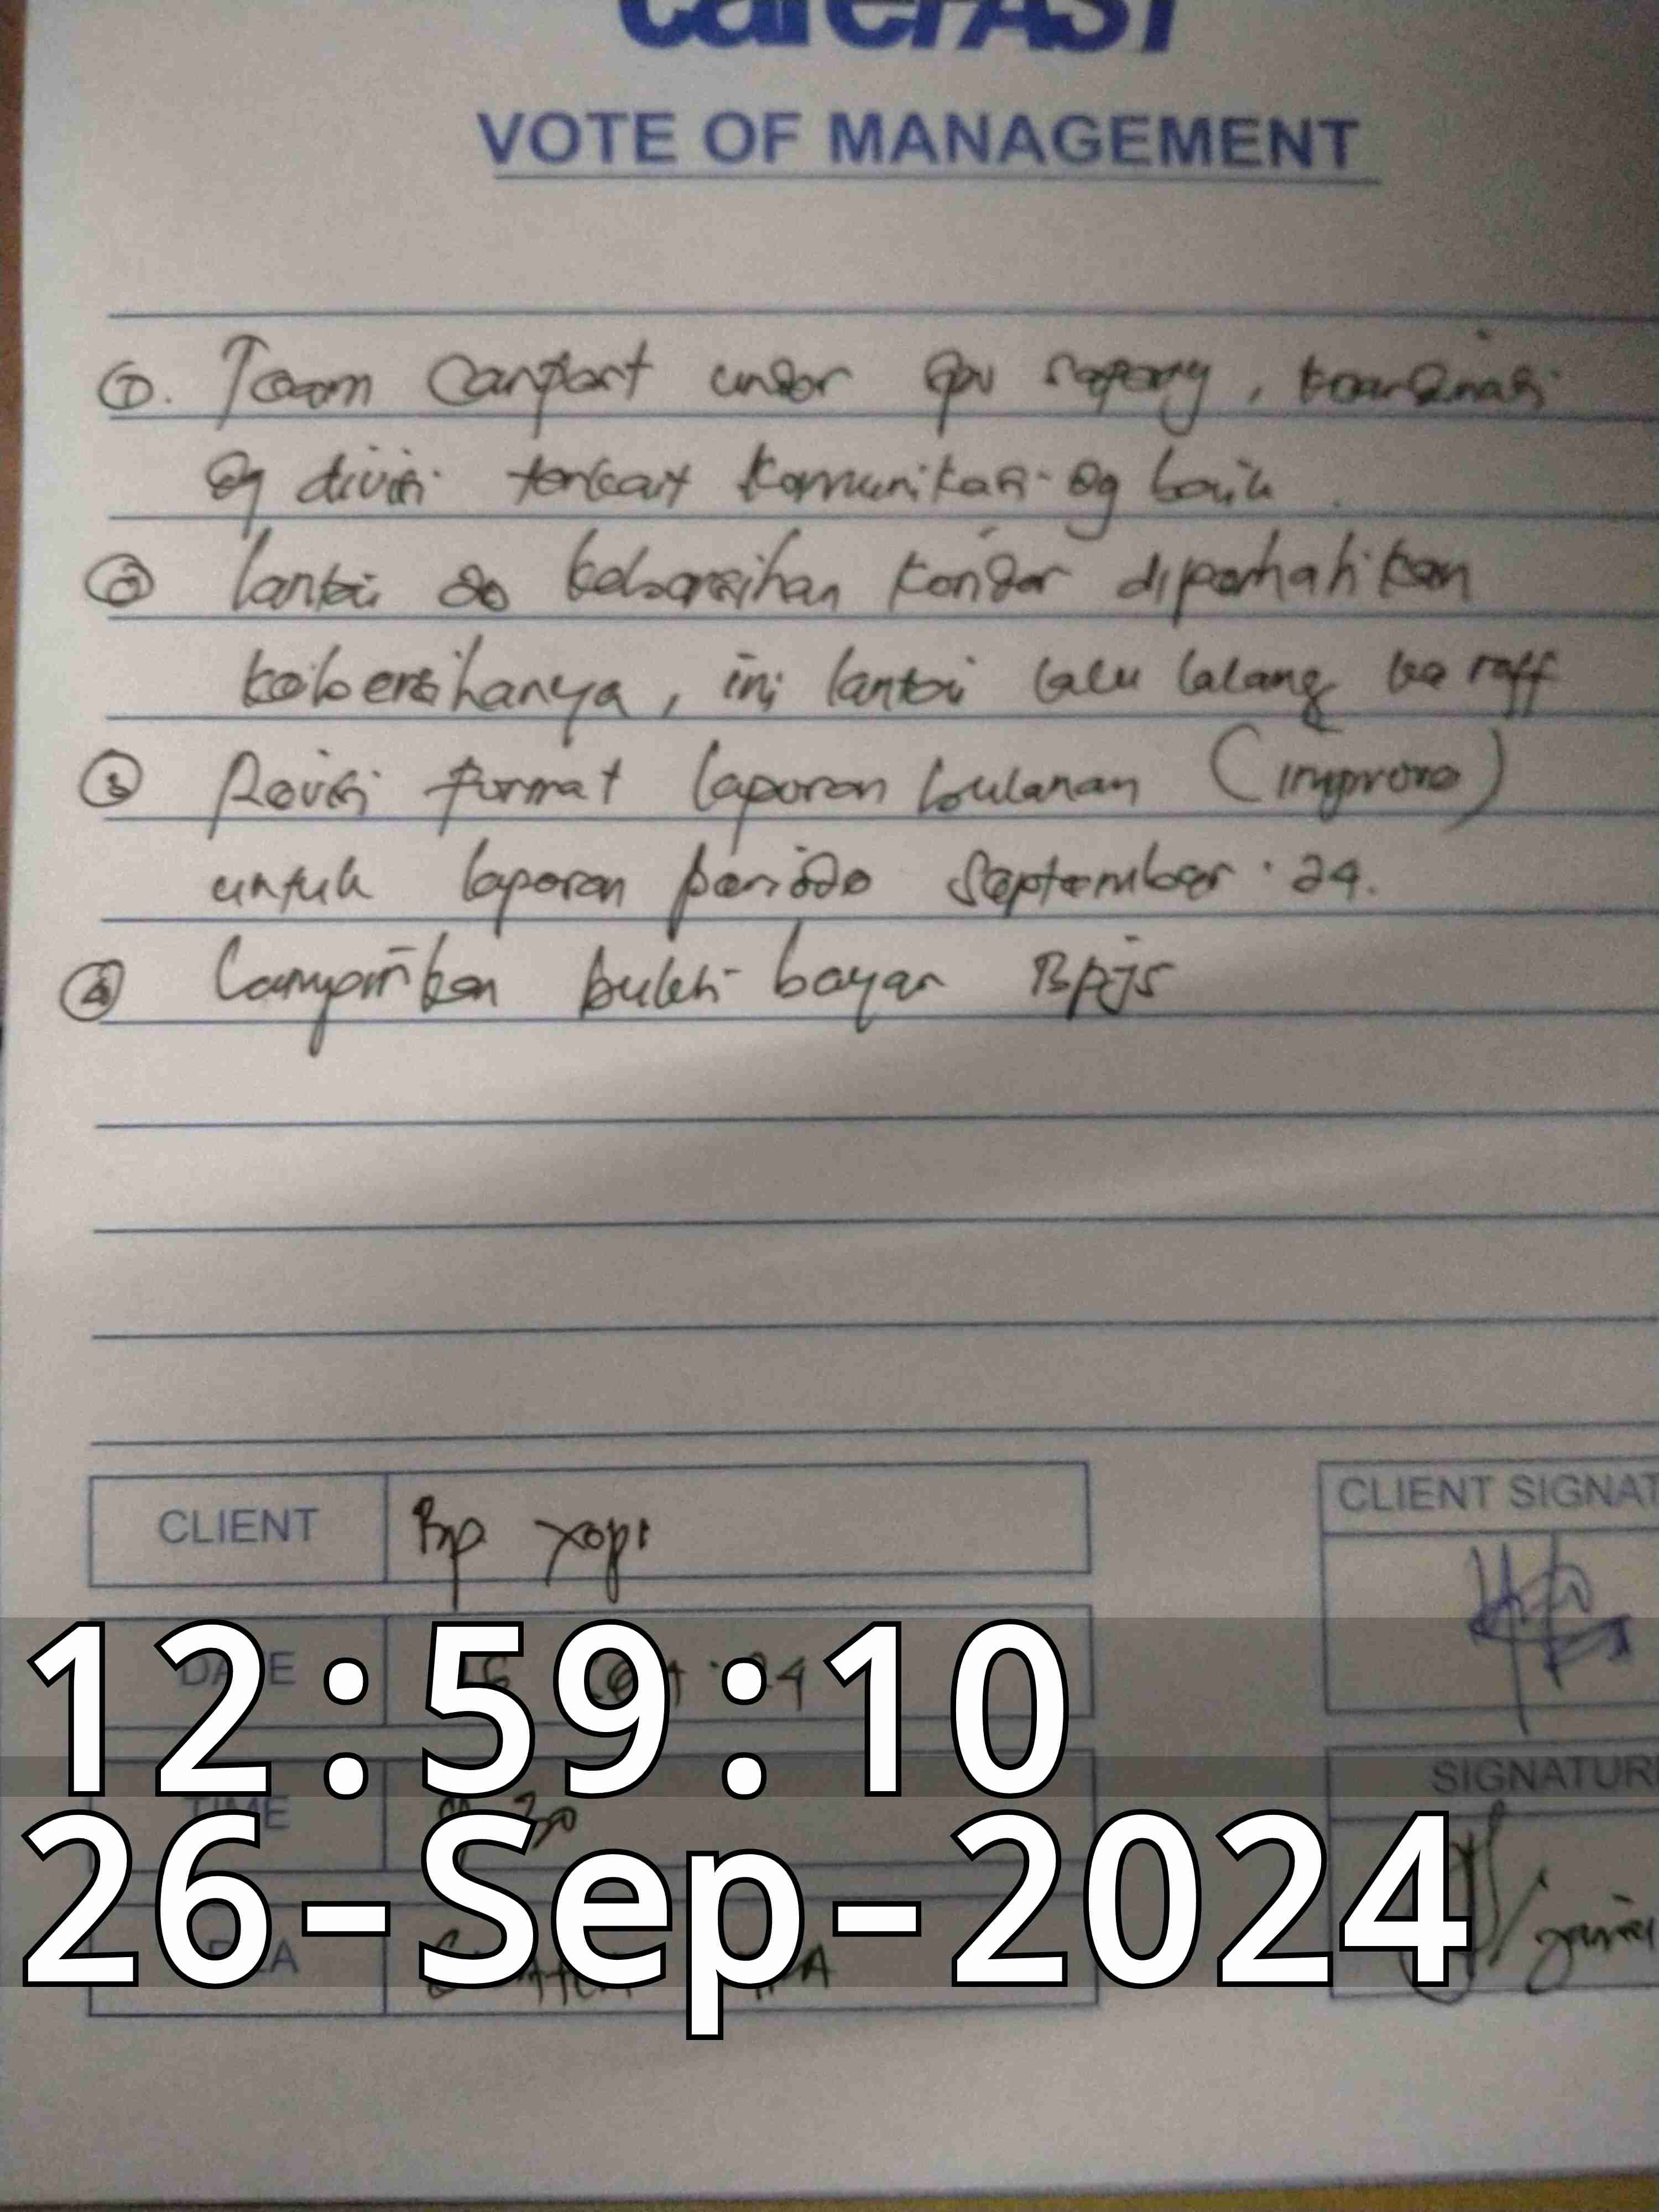 careFAST
VOTE OF MANAGEMENT
①. Team Carefast under spv sepang, koordinasi
dg divisi terkait komunikasi dg baik.
② lantai do kebersihan kondor diperhatikan
kebersihanya, ini lantai lalu lalang
③ Revisi format laporan bulanan (improve)
untuk laporan periode September. 24.
④ Lampirkan bukti bayar BPJS
CLIENT
Bp Yopi
CLIENT SIGNAT
DATE
TIME
SIGNATUR
12:59:10
26-Sep-2024